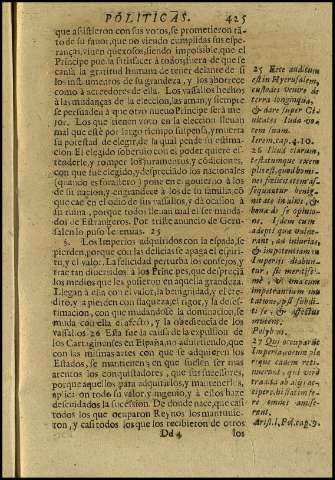 POLITICAS. 425
que assistieron con sus votos, se prometieron tã-
to de su fauor, que no viendo cumplidas sus espe-
ranças, viuen quexosos, siendo impossible, que el
Principe pueda satisfacer a todos, fuera de que se
cansa la gratitud humana de tener delante de si
los instrumentos de su grandeza, y los aborrece
como à acreedores de ella. Los vassallos hechos
à las mudanças de la eleccion, las aman, y siempre
se persuaden à que otro nueuo Principe serà me-
jor. Los que tienen voto en la eleccion lleuan
mal que estè por largo tiempo suspensa, y muerta
su potestad de elegir, de la qual pende su estima-
cion. El elegido soberuio con el poder quiere es-
tenderle, y romper los juramentos, y cõdiciones,
con que fue elegido, y despreciãdo los nacionales
(quando es forastero) pone en el gouierno à los
de su nacion, y engrandece à los de su familia, cõ
que cae en el odio de sus vassallos, y dà ocasion à
su ruina, porque todos lleuan mal el ser manda-
dos de Estrangeros. Por triste anuncio de Geru-
salen lo puso Ieremias. 25
5. Los Imperios adquiridos con la espada, se
pierden, porque con las delicias se apaga el espiri-
tu, y el valor. La felicidad perturba los consejos, y
trae tan diuertidos à los Principes, que desprecia
los medios que los pusieron en aquella grandeza.
Llegan à ella con el valor, la benignidad, y el cre-
dito, y la pierden con flaqueza, el rigor, y la deses-
timacion, con que mudandose la dominacion, se
muda con ella el afecto, y la obediencia de los
vassallos 26 Esta fue la causa de la expulsion de
los Cartaginenses en España, no aduirtiendo, que
con las mismas artes con que se adquieren los
Estados, se mantienen; en que suelen ser mas
atentos los conquistadores, que sus sucessores,
porque aquellos para adquirirlos, y mantenerlos,
aplican todo su valor, y ingenio, y à estos haze
descuidados la sucession. De donde nace, que casi
todos los que ocuparon Reynos los mantuuie-
ron, y casi todos los que los recibieron de otros
Dd 4 los
25 Este auditum
est in Hyerusalem,
custodes venire de
terra longinqua,
& dare super Ci-
uitates Iuda vo-
cem suam.
Ierem. cap. 4. 16.
26 Illud clarum,
testatumque exem
plis est, quod homi-
nes felicitatem as-
sequantur benig-
nitate in alios, &
bona de se opinio-
ne. Idem cum
adepti que volue-
rant, ad iniurias,
& impotentiam in
Imperijs dilabun-
tur, fit meritissi-
mè, vt vna cum
imperantium mu
tatione, ipsi subdi-
ti se, & affectus
mutent.
Polybius.
27 Qui occuparũt
Imperia, eorum ple
rique eadem reti-
nuerunt, qui verò
tradita ab alijs ac-
cipere, hi statim fe-
re omnes amise-
runt.
Arist. l. Pol. cap. 9.